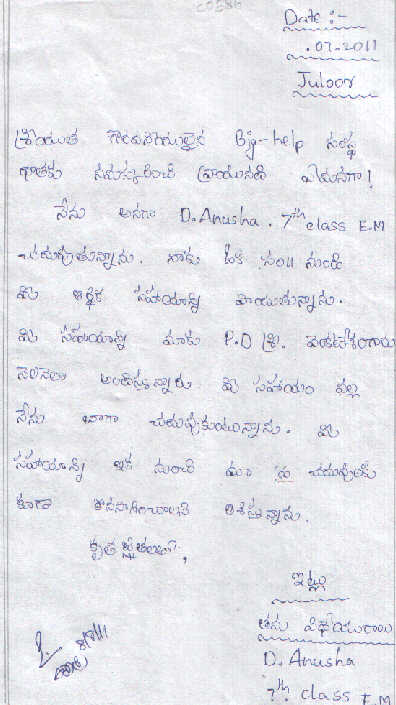 Date :-
.07-2011
Juloor
శ్రీయుత గౌరవనీయులైన Big-help సంస్థ
దాతకు నమస్కరించి వ్రాయునది ఏమనగా!
నేను అనగా D.Anusha. 7th class E.M
చదువుతున్నాను. నాకు ఒక సం॥ నుండి
మీ ఆర్థిక సహాయాన్ని పొందుచున్నాను.
మీ సహాయాన్ని మాకు P.D శ్రీ. వెంకటేశంగారు
నెలనెలా అందిస్తున్నారు. మీ సహాయం వల్ల
నేను బాగా చదువుకుంటున్నాను. మీ
సహాయాన్ని ఇక నుంచి మా చదువులకు
కూడా కొనసాగించాలని ఆశిస్తున్నాను.
కృతజ్ఞతలతో,
ఇట్లు
తమ విధేయురాలు
D. Anusha
7th class E.M
8/7/11